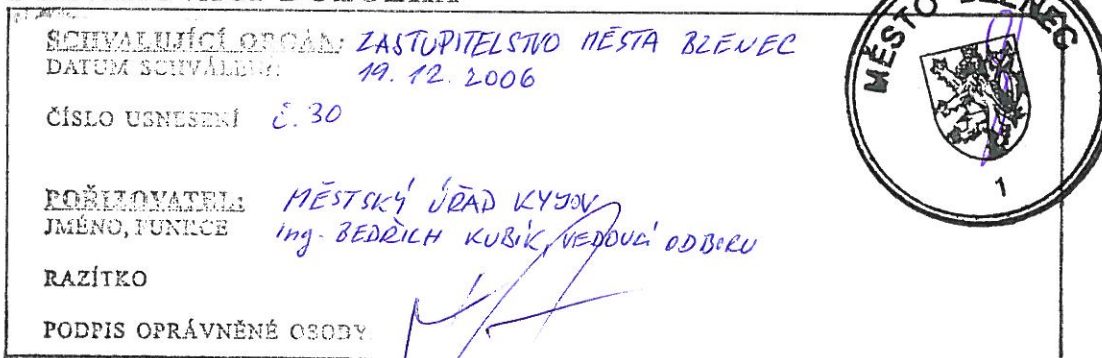 SCHVALUJÍCÍ ORGÁN: ZASTUPITELSTVO MĚSTA BZENEC
DATUM SCHVÁLENÍ: 19. 12. 2006
ČÍSLO USNESENÍ č. 30
POŘIZOVATEL: MĚSTSKÝ ÚŘAD KYJOV
JMÉNO, FUNKCE ing. BEDŘICH KUBÍK, VEDOUCÍ ODBORU
RAZÍTKO
PODPIS OPRÁVNĚNÉ OSOBY
MĚSTO BZENEC
1